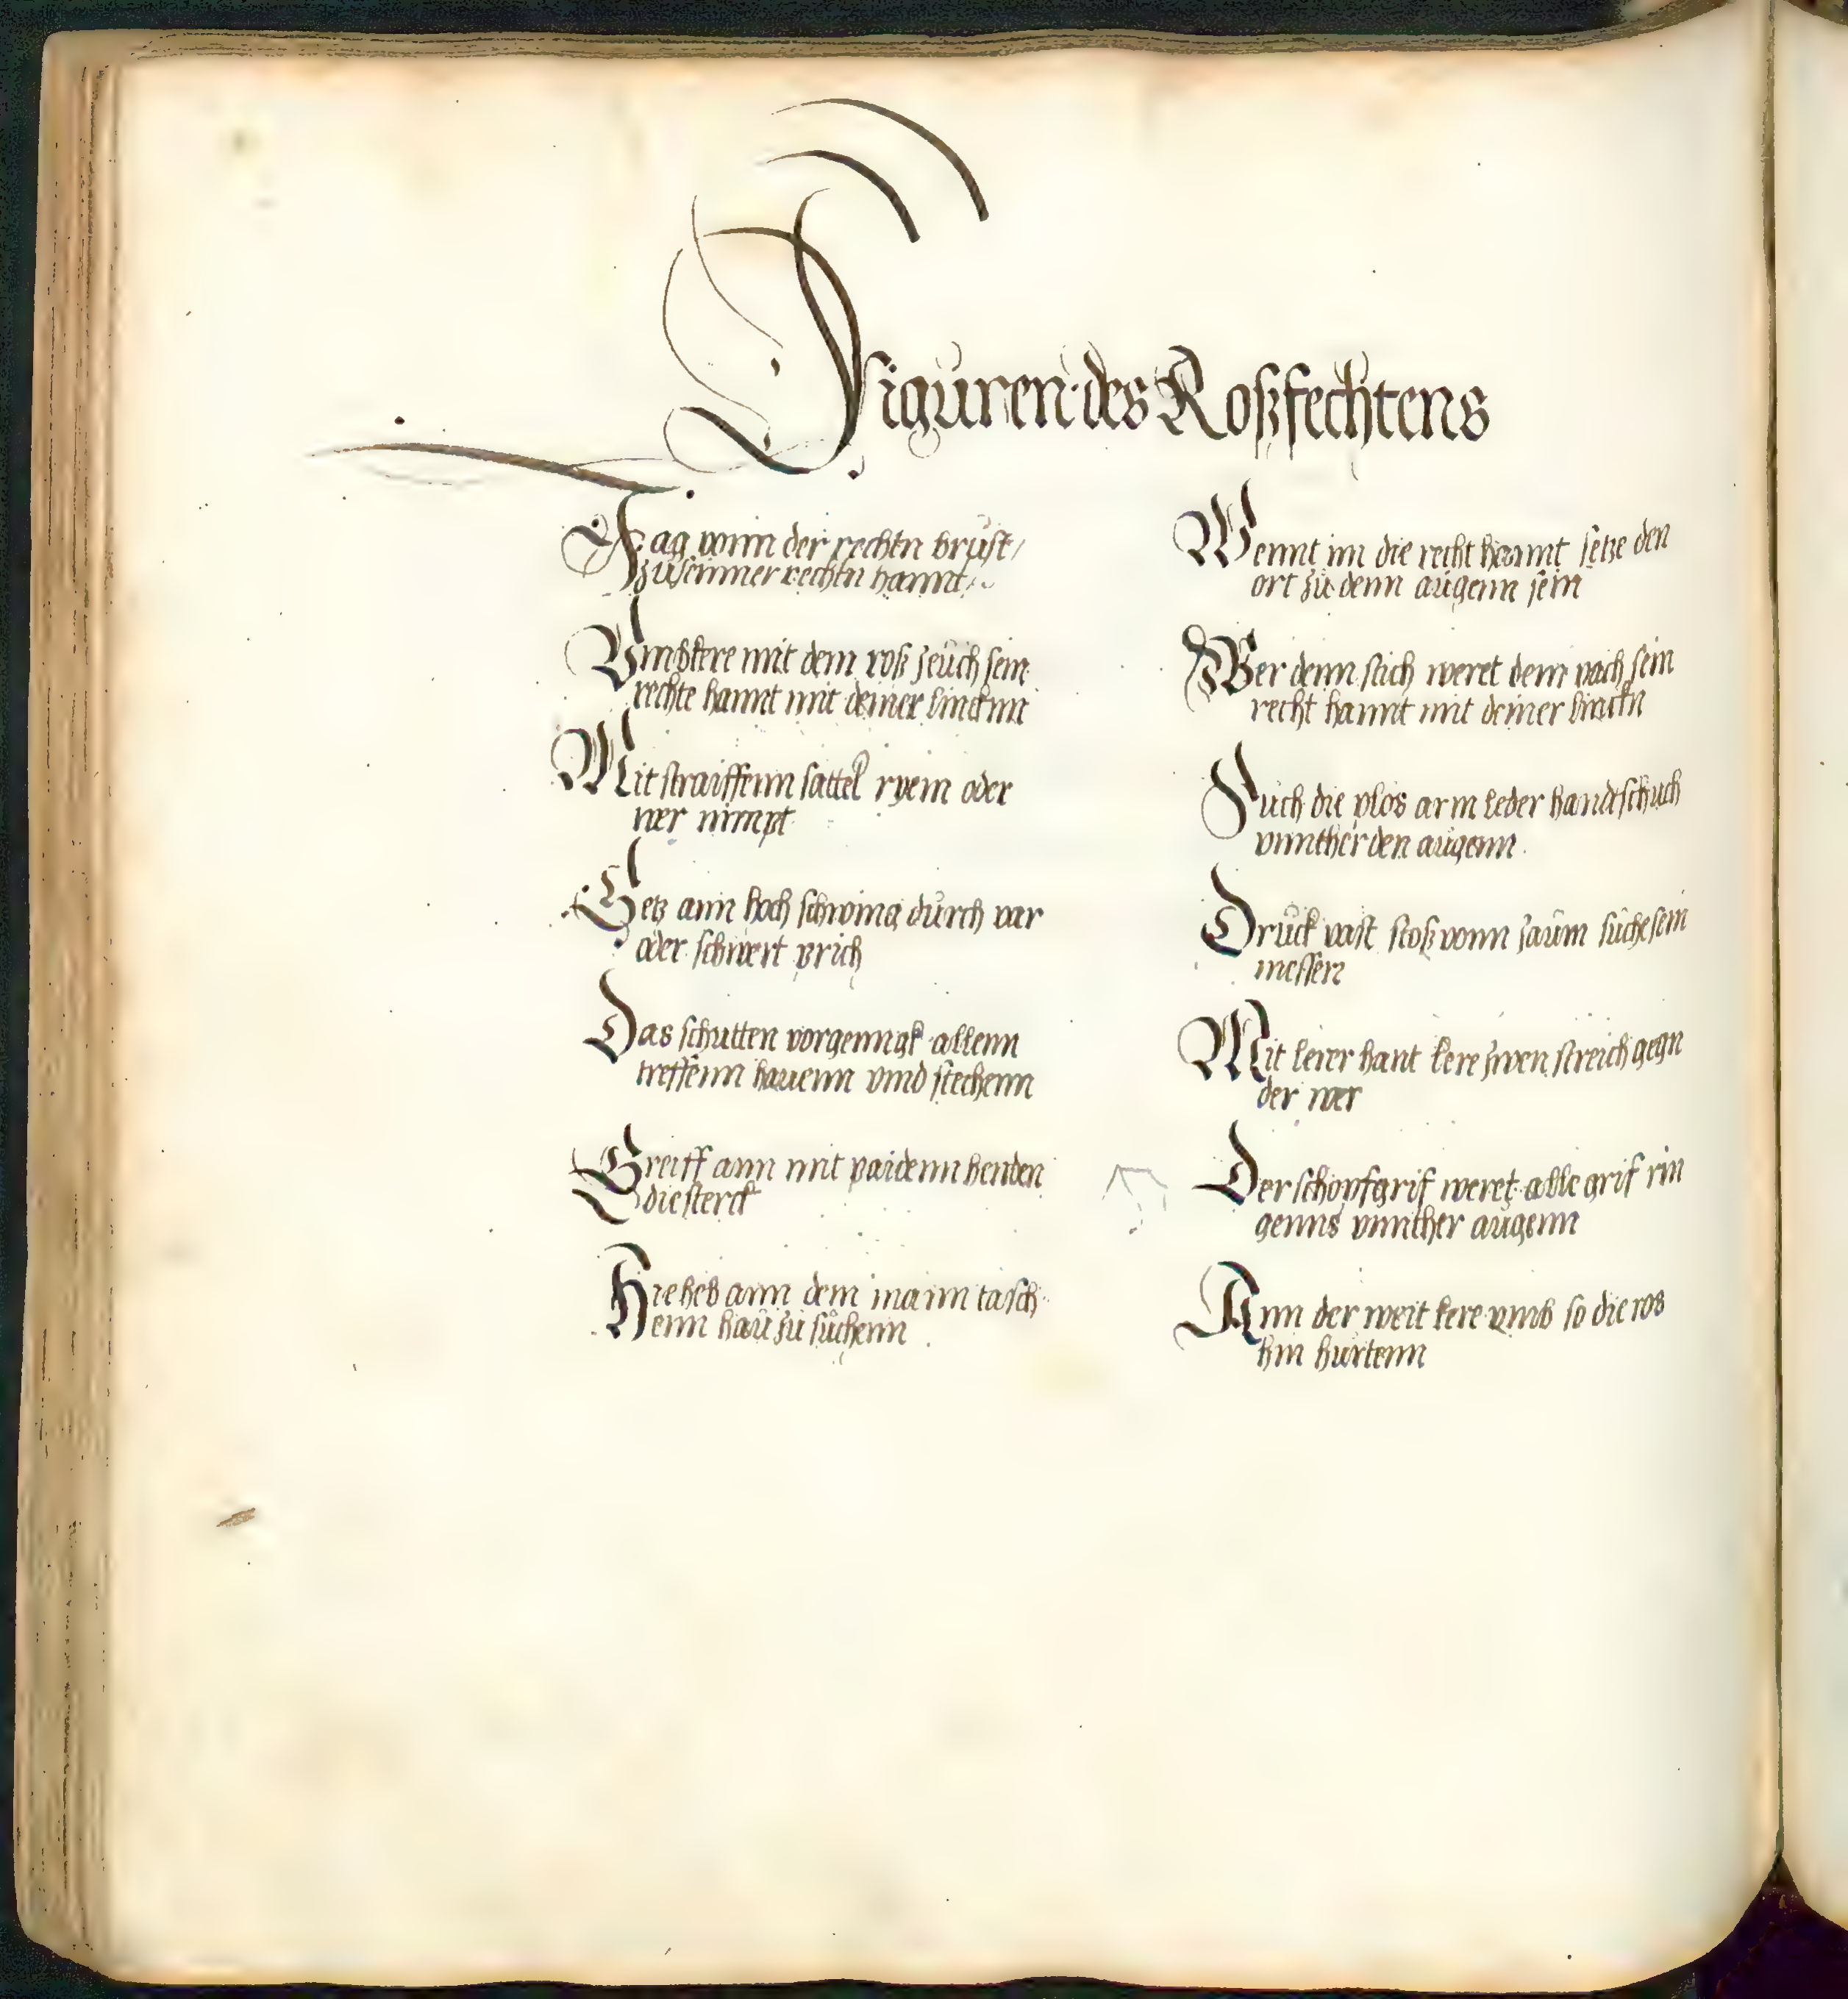 Figuren des Roßfechtens
Jag vonn der rechtn brust /
zu seinner rechtn hannt
Vmbkere mit dem roß zeuch sein
rechte hannt mit deiner lincknn
Mit straiffenn sattel ryem oder
wer nimpt
Setz ann hoch schwing durch var
oder schwert prich
Das schutten vorgenngk allenn
treffenn hauenn vnnd stechenn
Greiff ann mit paidenn henden
die sterck
Hie heb ann dem mann tasch
enn hau zu suchenn
Wennt im die recht hannt setze den
ort zu denn augenn sein
Wer denn stich weret dem vach sein
recht hannt mit deiner linckn
Such die plos arm leder handtschuch
vnnther den augenn
Druck vast stoß vonn zaum suche sein
messer
Mit lerer hant lere zwen streich gegn
der wer
Der schopfgrif weret alle grif rin
genns vnnther augenn
Ann der weit kere vmb so die ros
hin hurtenn